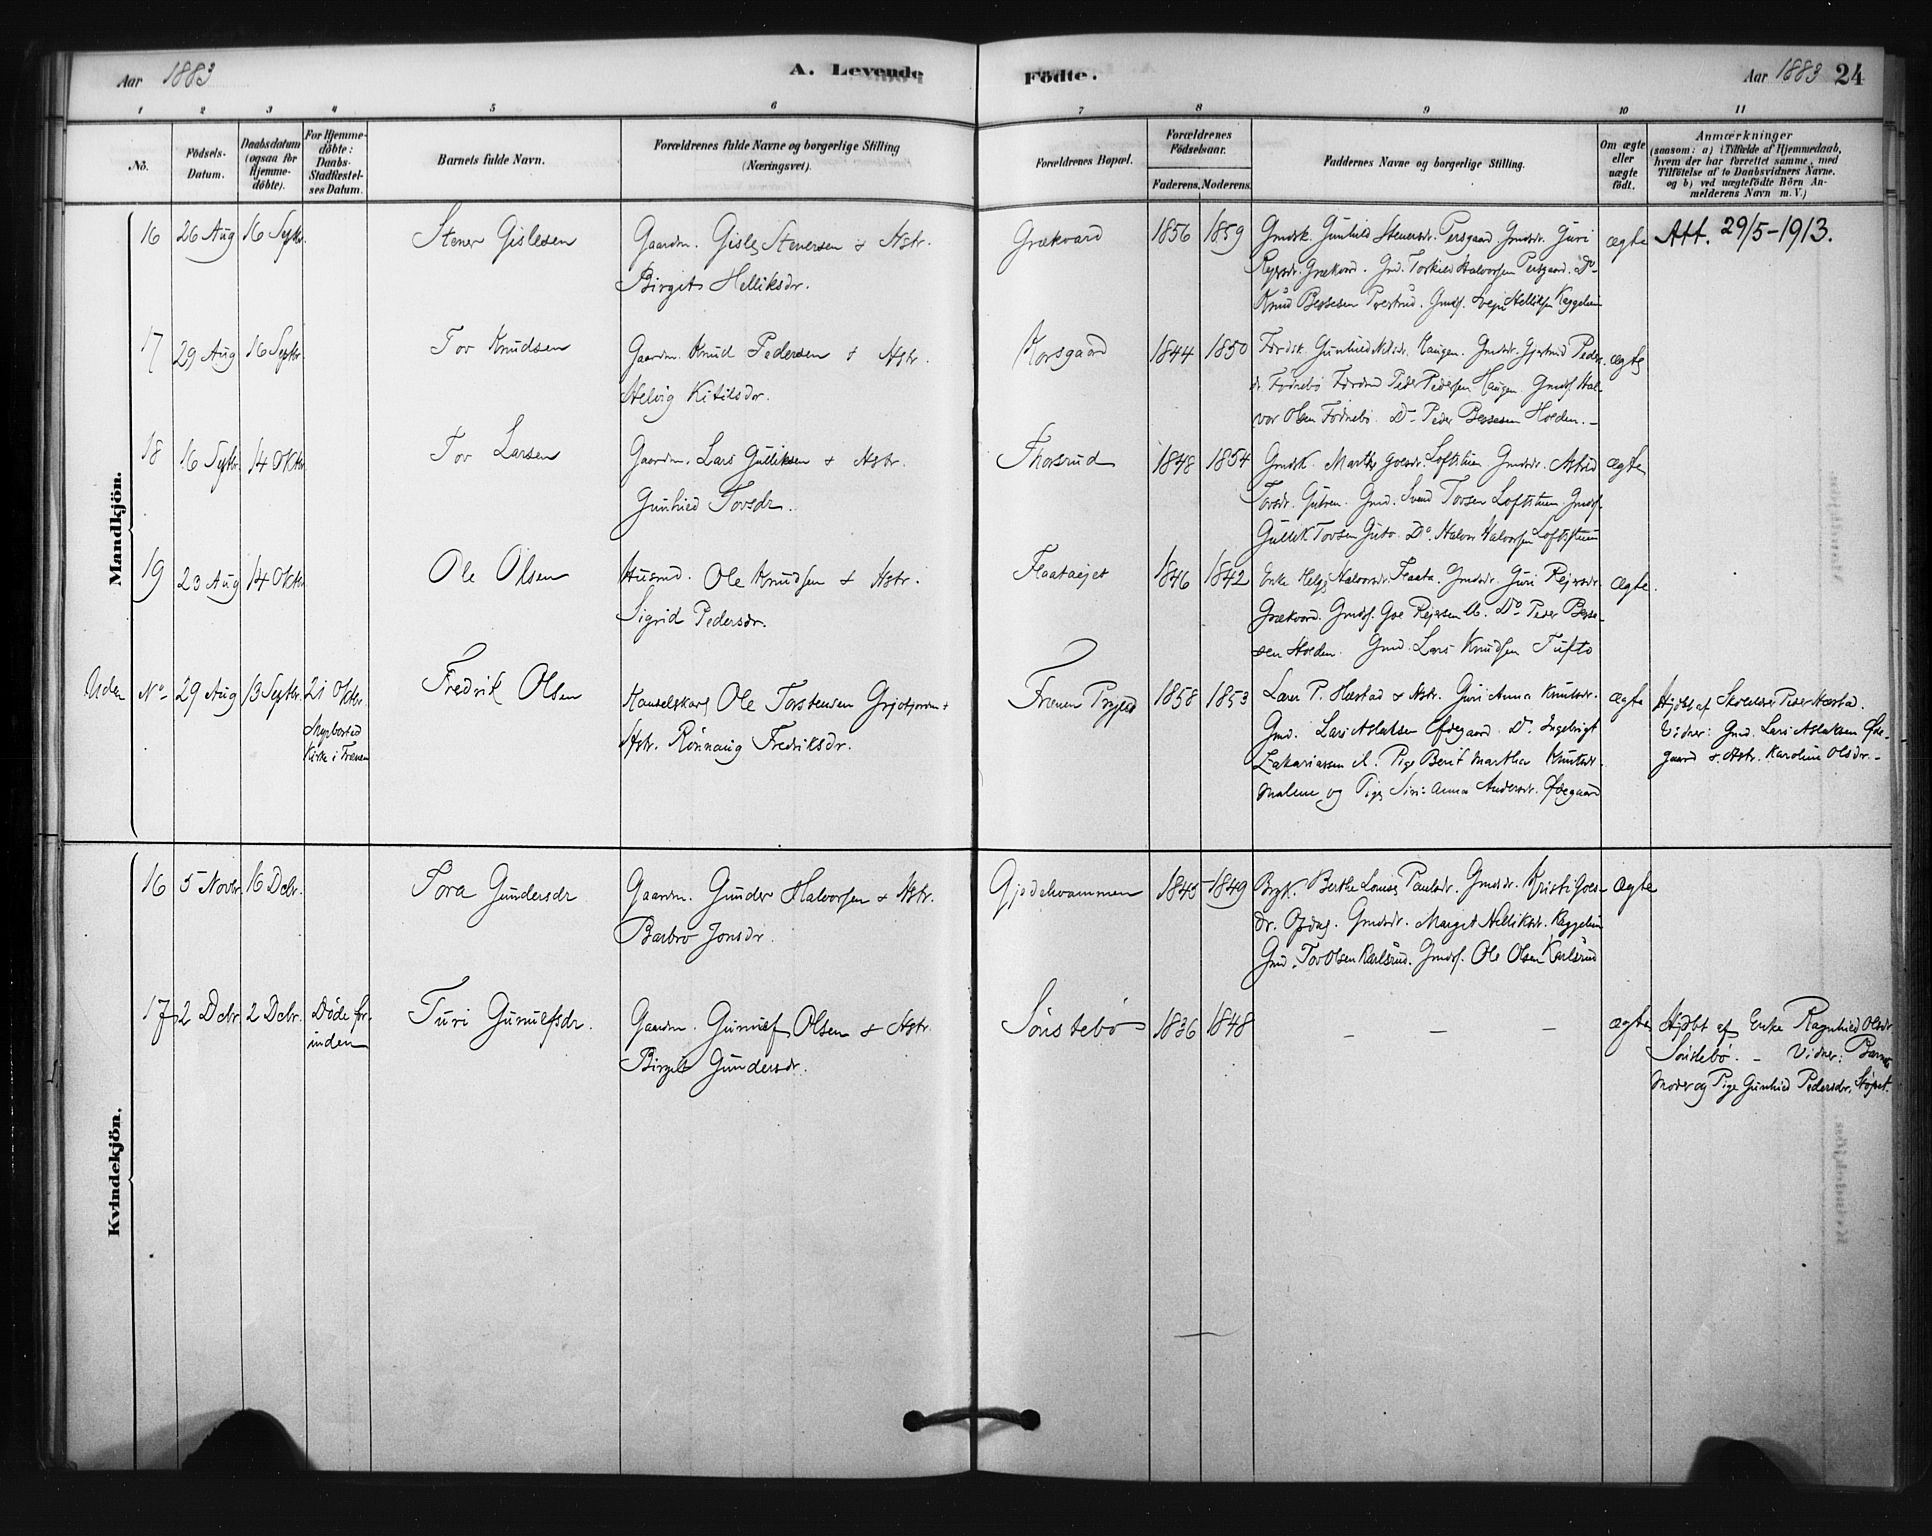 Aar 1883
A. Levende Födte.
Aar 1883 24
1 2 3 4 5 6 7 8 9 10 11
No.
Födsels-
Datum.
Daabsdatum
(ogsaa for
Hjemme-
döbte).
For Hjemme-
döbte:
Daabs-
Stadfæstel-
ses Datum.
Barnets fulde Navn.
Forældrenes fulde Navne og borgerlige Stilling
(Næringsvei).
Forældrenes Bopæl.
Forældrenes
Födselsaar.
Faderens. Moderens.
Faddernes Navne og borgerlige Stilling.
Om ægte
eller
uægte
födt.
Anmærkninger
(saasom: a) i Tilfælde af Hjemmedaab,
hvem der har forrettet samme, med
Tilföielse af to Daabsvidners Navne,
og b) ved uægtefödte Börn An-
melderens Navn m. V.)
Mandkjön.
16 26 Aug 16 Septbr. Stener Gislesen
Gaardm. Gisle Stenersen & Hstr.
Birgit Helliksdr.
Grækvard 1856 1859
Gmdsk. Gunhild Stenersdr. Persgaard Gmdsdr. Guri
Rejersdr. Grækvard. Gmd. Torkild Halvorsen Persgaard. Do
Knud Bessesen Prestrud. Gmdss. Svejn Helliksen Kaggelien
ægte Att. 29/5-1913.
17 29 Aug 16 Septbr. Tov Knudsen
Gaardm. Knud Pedersen & Hstr.
Helvig Kittilsdr.
Korsgaard 1844 1850
Gunhild Nilsdr. Haugen. Gmdsdr. Gjertrud Peders-
dr. Fønnebø Peder Pedersen Haugen Gmdss. Hal-
vor Olsen Fønnebø. Do Peder Bessesen Holden.
ægte
18 16 Septbr. 14 Oktbr. Tov Larsen
Gaardm. Lars Gulliksen & Hstr.
Gunhild Tovsdr.
Thorsrud 1848 1854
Gmdsk. Marthe Goesdr. Loftstuen Gmdsdr. Astrid
Tovsdr. Gmd. Svend Tovsen Loftstuen Gmdss.
Gullik Tovsen Do. Halvor Halvorsen Loftstuen
ægte
19 23 Aug 14 Oktbr Ole Olsen
Husmd. Ole Knudsen & Hstr.
Sigrid Pedersdr.
Flaataejet 1846 1842
Enke Helge Halvorsdr. Flaata. Gmdsdr. Guri Rejersdr.
Grækvard. Gmdss. Goe Rejersen ib. Do Peder Besse-
sen Holden. Gmd. Lars Knudsen Tufto
ægte.
Uden No 29 Aug 13 Septbr. 21 Oktbr.
Myrbostad
Kirke i Frænen
Fredrik Olsen
Handelskarl Ole Torstensen Grjotjorden &
Hstr. Rönnaug Fredriksdr.
Frænen Prgjeld 1858 1853
Lærer P. Hæstad & Hstr. Guri Anna Knutsdr.
Gmd. Lars Aslaksen Ødegaard. Do. Ingebrigt
Zakariassen ib. Pige Berit Martha Knutsdr.
Malme og Pige Siri Anna Andersdr. Ødegaard
ægte
Hjdbt af Skolelærer Peder Hæstad.
Vidner: Gmd. Lars Aslaksen Øde-
gaard & Hstr. Karoline Olsdr.
Kvindekjön.
16 5 Novbr. 16 Dcbr. Tora Gundersdr
Gaardm. Gunder Halvorsen & Hstr.
Barbro Jonsdr.
Gjedehvammen 1845 1849
Bryk. Berthe Louise Paulsdr. Gmdsdr. Kristi Goes-
dr. Opdal. Gmdsdr. Margit Helliksdr. Kaggelien
Gmd. Tov Olsen Karlsrud. Gmdss. Ole Olsen Karlsrud
ægte
17 2 Dcbr. 2 Dcbr. Døde for-
inden
Turi Gunulfsdr.
Gaardm. Gunulf Olsen & Hstr.
Birgit Gundersdr.
Sönstebö 1836 1848
— — —
ægte
Hjdbt af Enke Ragnhild Olsdr
Sönstebö. – Vidner: Barnets
Moder og Pige Gunhild Pedersdr.